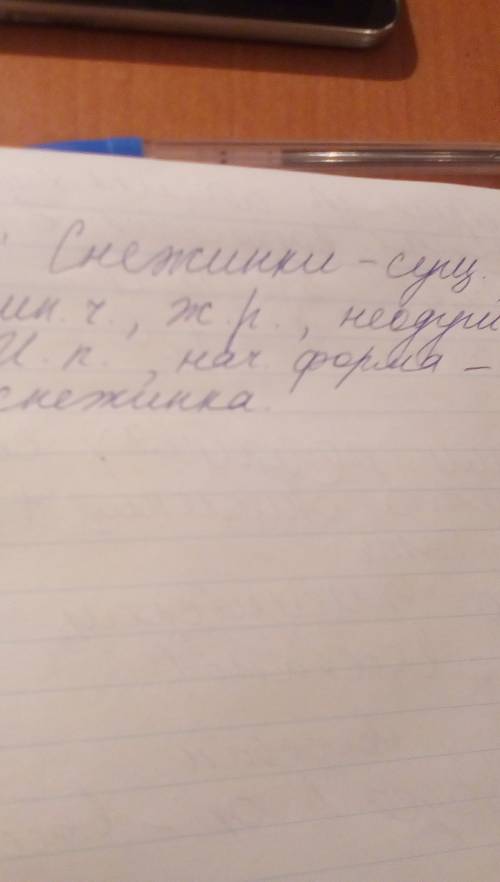 Снежинки – сущ.
мн. ч., ж. р., неодуш
И. п., нач. форма –
снежинка.